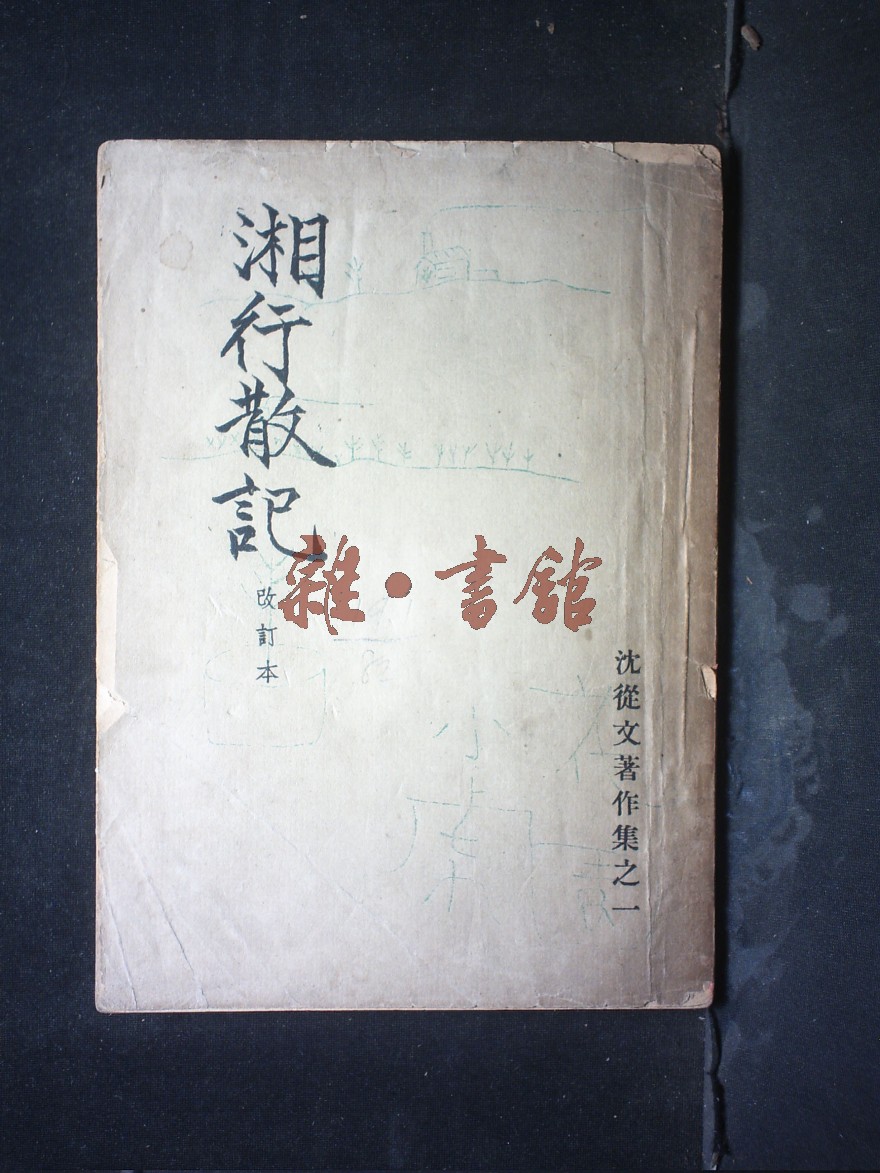 湘行散記
改訂本
沈從文著作集之一
雜·書館
小